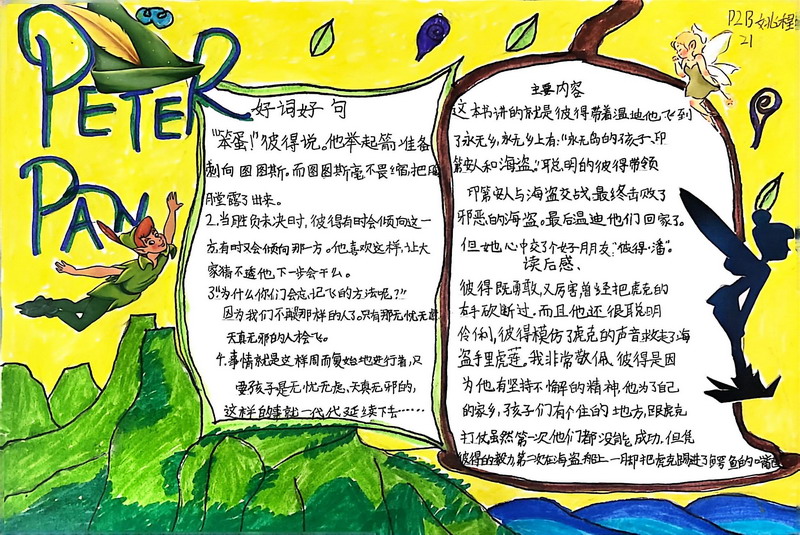 PETER
PAN
P2B
21
好词好句
"笨蛋!"彼得说。他举起箭,准备
刺向图图斯。而图图斯毫不畏缩把
膛露了出来。
2.当胜负未决时,彼得有时会倾向这一
方,有时又会倾向那一方。他喜欢这样,让大
家猜不透他,下一步会干么。
3"为什么你们会忘记飞的方法呢?"
因为我们不再是那样的人了。只有那无忧无虑
天真无邪的人才会飞。
4.事情就是这样周而复始地进行着,只
要孩子是无忧无虑、天真无邪的,
这样的事就一代代延续下去……
主要内容
这本书讲的就是彼得带着温迪他飞到
了永无乡,永无乡上有:"永无岛的孩子、印
第安人和海盗。"聪明的彼得带领
印第安人与海盗交战,最终击败了
邪恶的海盗。最后温迪他们回家了。
但她心中交了个好朋友"彼得·潘"。
读后感、
彼得既勇敢,又厉害曾经把虎克的
右手砍断过。而且他还很聪明
伶俐,彼得模仿了虎克的声音救走了海
盗手里虎莲。我非常敬佩、彼得是因
为他有坚持不懈的精神,他为了自己
的家乡,孩子们有个住的地方,跟虎克
打仗虽然第一次他们都没能成功,但凭
彼得的毅力,第二次在海盗船上一脚把虎克踢进了鳄鱼的嘴